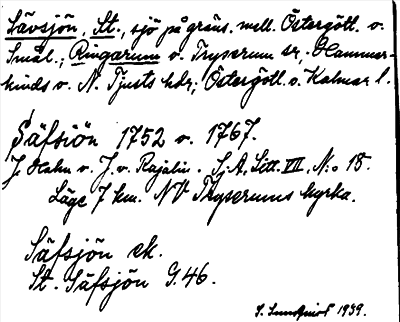 Sävsjön, St., sjö på gräns. mell. Östergötl. o.
Smål.; Ringarum o. Tryserum sr, Hammer-
kinds o. N. Tjusts hdr; Östergötl. o. Kalmar l.
Säfsiön 1752 o. 1767.
J. Hahn o. J. v. Rajalin. Sj. A. Litt. VII, N:o 18.
Läge 7 km. NV Tryserums kyrka.
Säfsjön ek.
St. Säfsjön G. 46.
S. Lundqvist 1939.